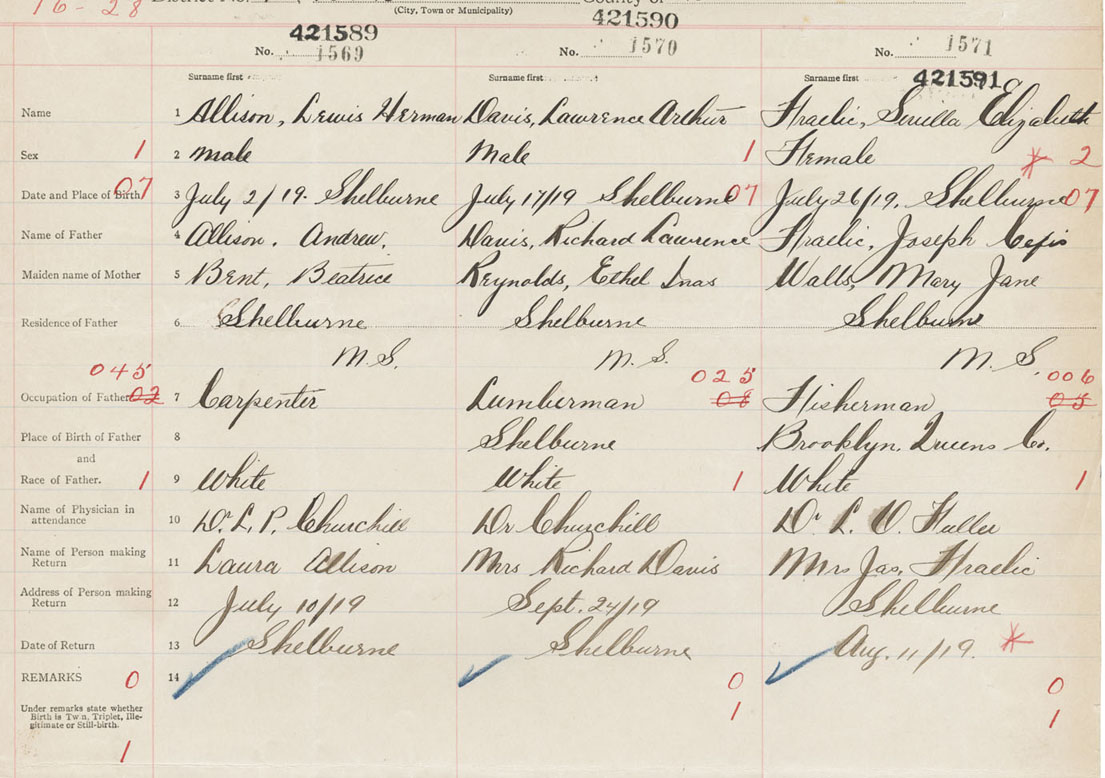 16-28
District No.
(City, Town or Municipality)
County of
421589
421590
No. 1569
No. 1570
No. 1571
Surname first
Surname first
Surname first
421591
Name
1
Allison, Lewis Herman
Davis, Lawrence Arthur
Fraelic, Sevilla Elizabeth
Sex
1
2
Male
Male
1
Female
2
Date and Place of Birth
07
3
July 2/19. Shelburne
July 17/19 Shelburne
07
July 26/19, Shelburne
07
Name of Father
4
Allison, Andrew,
Davis, Richard Lawrence
Fraelic, Joseph
Maiden name of Mother
5
Bent, Beatrice
Reynolds, Ethel Inas
Walls, Mary Jane
Residence of Father
6
Shelburne
Shelburne
Shelburne
M. S.
M. S.
M. S.
045
025
006
Occupation of Father
02
7
Carpenter
Lumberman
08
Fisherman
05
Place of Birth of Father
8
Shelburne
Brooklyn, Queens Co.
and
Race of Father.
1
9
White
White
1
White
1
Name of Physician in
attendance
10
Dr. L. P. Churchill
Dr Churchill
Dr L. O. Fuller
Name of Person making
Return
11
Laura Allison
Mrs Richard Davis
Mrs Jas. Fraelic
Address of Person making
Return
12
July 10/19
Sept. 24/19
Shelburne
Date of Return
13
Shelburne
Shelburne
Aug. 11/19.
REMARKS
0
14
0
0
Under remarks state whether
Birth is Twin, Triplet, Ille-
gitimate or Still-birth.
1
1
1